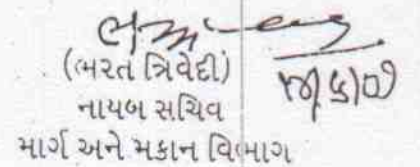 (ભરત ત્રિવેદી)
નાયબ સચિવ
માર્ગ અને મકાન વિભાગ